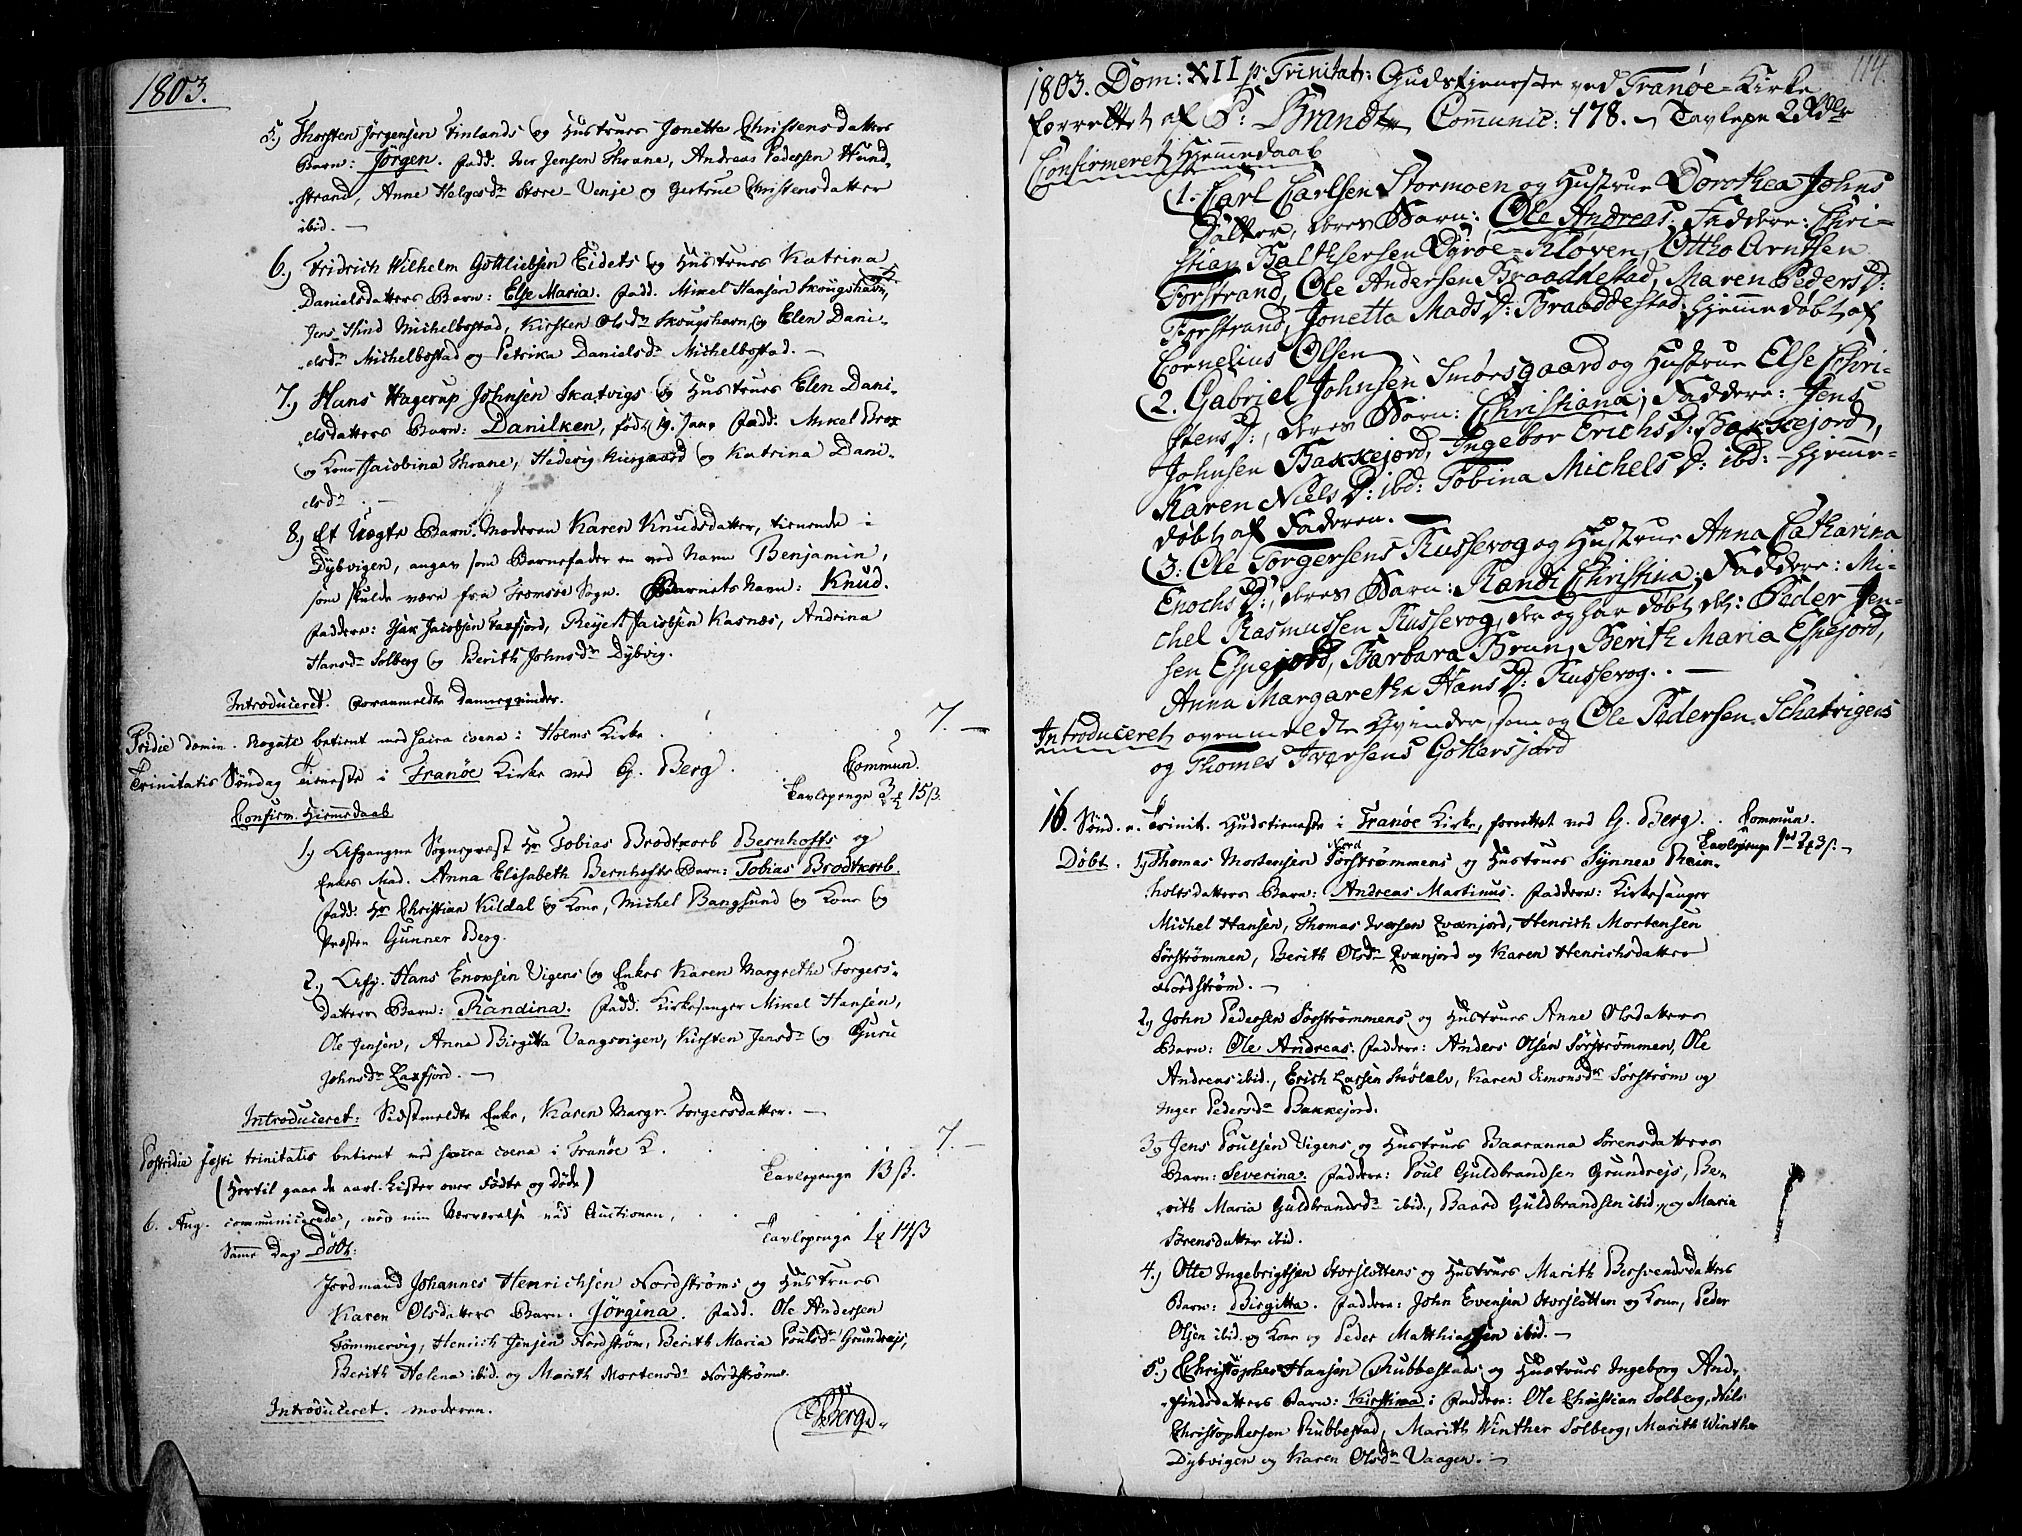 1803.
5.) Thorsten Jörgensen Finlands og Hustrues Jonetta Christensdatters
Barn: Jörgen. Fadd. Iver Jensen Thrane, Andreas Pedersen Wund-
strand, Anne Helgesdr Store-Venje og Gertrue Christensdatter
ibid. —
6.) Fridrich Wilhelm Gottliebsen Eidets og Hustrues Katrina
Danielsdatters Barn: Else Maria. Fadd. Mikel Hansen Skougshavn,
Jens Hind Michelbostad, Kirsten Olsdr Skougshavn og Elen Dani-
elsdr Michelbostad og Petrika Danielsdr Michelbostad. —
7.) Hans Hagerup Johnsen Skatvigs og Hustrues Elen Dani-
elsdatters Barn: Danilken, född 19. Jan. Fadd: Mikel Brox
og Kone Jacobina Thrane, Hedevig Kiergaard og Katrina Dani-
elsdr —
8.) Et Uægte Barn. Moderen Karen Knudsdatter, tienende i
Dybvigen, angav som Barnefader en ved Navn Benjamin,
som skulde være fra Tromsöe Sogn. Barnets Navn: Knud.
Faddere: Isak Jacobsen Laxfjord, Reyert Jacobsen Kasnæs, Andrina
Hansdr Solberg og Berith Johnsdr Dybvig.
Introduceret. Forannmeldte Danneqvinder.
Pridie Domin. Rogate betient med sacra coena i Holms Kirke . . . 7. —
Trinitatis Söndag Tieneste i Tranöe Kirke ved G. Berg . . Commun.
Tavlepenge 3 ₰ 15 ß.
Confirm. Hiemmedaab
1.) Afgangne Sognepræst Hr Tobias Brodtkorb Bernhofts og
Enkes Mad. Anna Elisabeth Bernhofts Barn: Tobias Brodtkorb.
Fadd: Hr Christian Kildal og Kone, Michel Bangsund og Kone og
Præsten Gunner Berg.
2.) Afg. Hans Enoxsen Vigens og Enkes Karen Margrethe Torgers-
datters Barn: Randina. Fadd. Kirkesanger Mikel Hansen,
Ole Jensen, Anne Birgitta Vangsvigen, Kirsten Jensdr og Guru
Johnsdr Laxfjord. —
Introduceret: Sidstmeldte Enke, Karen Margr. Torgersdatter. —
Postridie festi trinitatis betient med sacra coena i Tranöe K. . . . 7. —
Tavlepenge 13 ß.
(Hertil gaar de aarl. Lister over Födte og Döde)
6. Aug. communicerede, ved min Nærværelse ved Auctionen, . . Tavlepenge 1 ₰ 14 ß
Samme Dag Döbt:
Jordmand Johannes Henrichsen Nordströms og Hustrues
Karen Olsdatters Barn: Jörgina. Fadd. Ole Andersen
Tömmervig, Henrich Jensen Nordström, Berith Maria Poulsdr Grundrejs,
Berith Helena ibid. og Marith Mortensdr Nordströms.
Introduceret. moderen.
Berg
114.
1803. Dom: XII p. Trinitat: Gudstjeneste ved Tranøe-Kirke
forrettet af P: Brandt Communic: 178. — Tavlepe 2 Rdlr
Confirmeret Hjemmedaab
(1. Carl Carlsen Stormoen og Hustrue Dorothea Johns
Datter, deres Barn: Ole Andreas. Faddere: Chri-
stian Balthsersen Dyrøe-Kløven, Otto Arntsen
Forstrand, Ole Andersen Braaddestad, Maren Peders D:
Forstrand, Jonetta Mads D: Braaddestad. Hjemmedøbt af
Cornelius Olsen
(2. Gabriel Johnsen Smørsgaard og Hustrue Else Chri-
stens D:, deres Barn: Christiana; Faddere: Jens
Johnsen Bakkejord, Ingebor Erichs D: Bakkejord,
Karen Niels D: ibd: Tobina Michels D: ibd: — Hjemme-
døbt af Faderen.
(3. Ole Torgersens Russevog og Hustrue Anna Catharina
Enochs D:, deres Barn: Randi Christina; Faddere: Mi-
chel Rasmussen Russevog, der og har døbt det: Peder Jen-
sen Espejord, Barbara Brun, Berith Maria Espejord,
Anna Margaretha Hans D: Russevog. . —
Introduceret ovenmeldte Qvinder, som og Ole Pedersen Schatvigens
og Thomes Iversens Gottersjord
16. Sönd. e. Trinit. Gudstieneste i Tranöe Kirke, forrettet ved G. Berg. . Commun.
Tavlepenge
Döbt. 1.) Thomas Mortensen Nord Sörströmmens og Hustrues Synnea Rein-
holtsdatters Barn: Andreas Martinus. Faddere: Kirkesanger
Michel Hansen, Thomas Iversen Evenjord, Henrich Mortensen
Sörströmmen, Berith Olsdr Evenjord og Karen Henrichsdatter
Nordström. —
2.) John Pedersen Sörströmmens og Hustrues Anne Olsdatters
Barn: Ole Andreas. Faddere: Anders Olsen Sörströmmen, Ole
Andreas ibid., Erich Larsen Skölelv, Karen Simonsdr Sörström og
Inger Pedersdr Bakkejord.
3.) Jens Poulsen Vigens og Hustrues Baaranna Sörensdatters
Barn: Severina. Faddere: Poul Guldbrandsen Grundrejs, Be-
rith Maria Guldbrandsdr ibid., Baard Guldbrandsen ibid., og Maria
Sörensdatter ibid.
4.) Otte Ingebrigtsen Storslottens og Hustrues Marith Bersvendsdatters
Barn: Birgitta. Faddere: John Evensen Storslotten og Kone, Peder
Olsen ibid. og Kone og Peder Matthiassen ibid. —
5.) Christopher Hansen Rubbestads og Hustrues Ingeborg And-
findsdatters Barn: Kirstina: Faddere: Ole Christian Solberg, Nils
Christophersen Rubbestad, Marith Winther Solberg, Marith Winther
Dybvigen og Karen Olsdr Vaagen. —